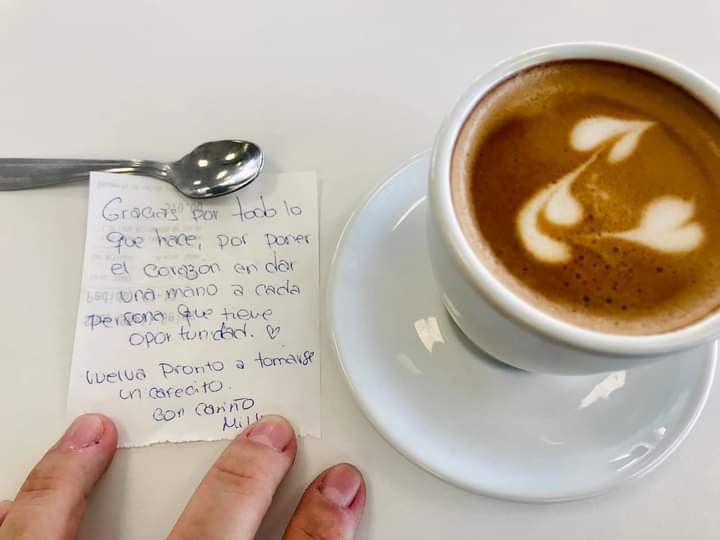 Gracias por todo lo
que hace, por poner
el corazon en dar
una mano a cada
persona que tiene
oportunidad. ♡
vuelva pronto a tomarse
un carecito.
con cariño